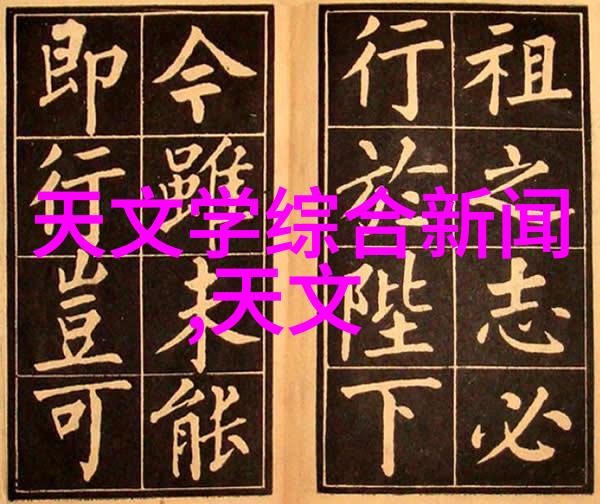 祖之志必
行於陛下
今雖未能
即行豈可
天文学综合新闻
,天文